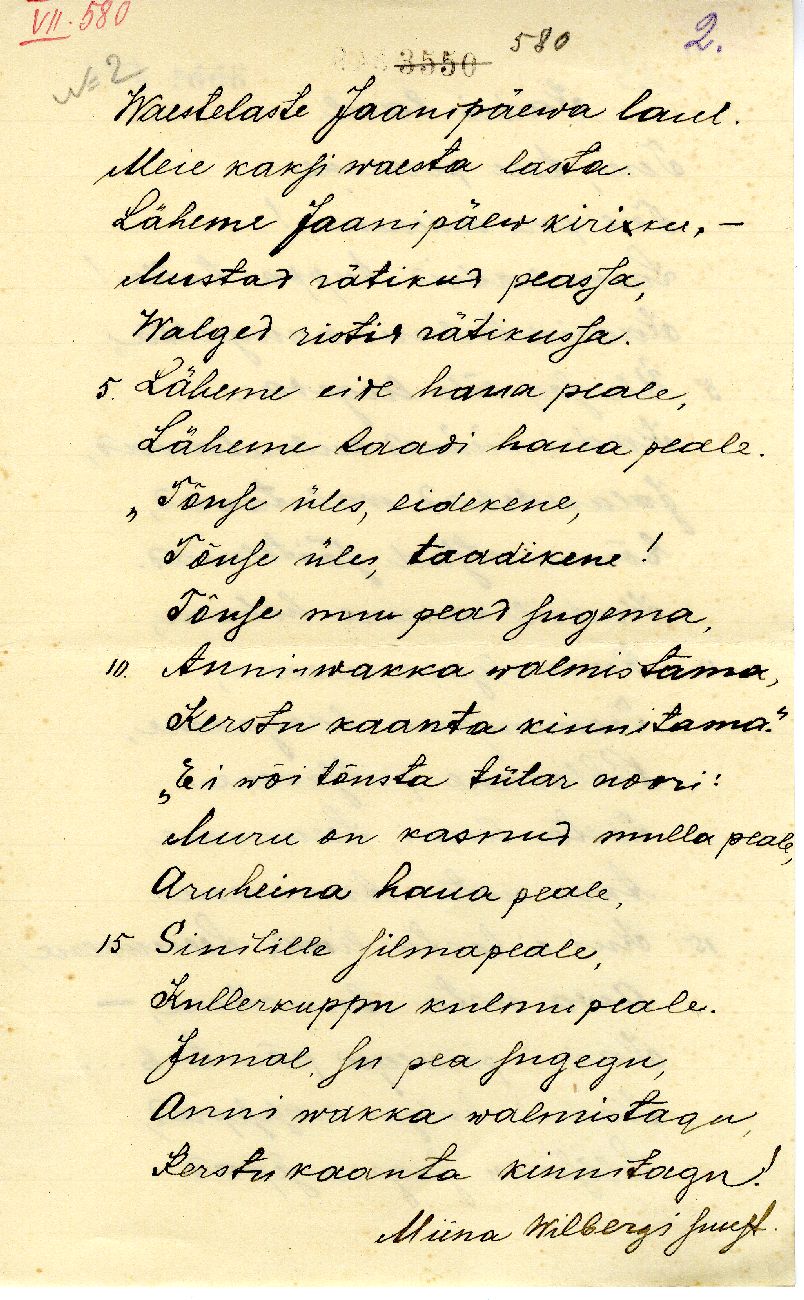 VII. 580
3550 580 2.
№ 2
Waestelaste Jaanipäewa laul.
Meie kaksi waesta lasta.
Läheme Jaanipäew kirikku, –
Mustad rätikud peassa,
Walged ristid rätikussa.
5. Läheme eide haua peale,
Läheme taadi haua peale.
„Tõuse üles, eidekene,
Tõuse üles, taadikene!
Tõuse mu pead sugema,
10. Anni-wakka walmistama,
Kerstu kaanta kinnitama."
„Ei wõi tõusta tütar noori:
Muru on kasnud mulla peale,
Aruheina haua peale,
15 Sinilille silmapeale,
Kullerkuppu kulmu peale.
Jumal, su pea sugegu,
Anni wakka walmistagu,
Kerstu kaanta kinnitagu!
Miina Wilbergi suust.